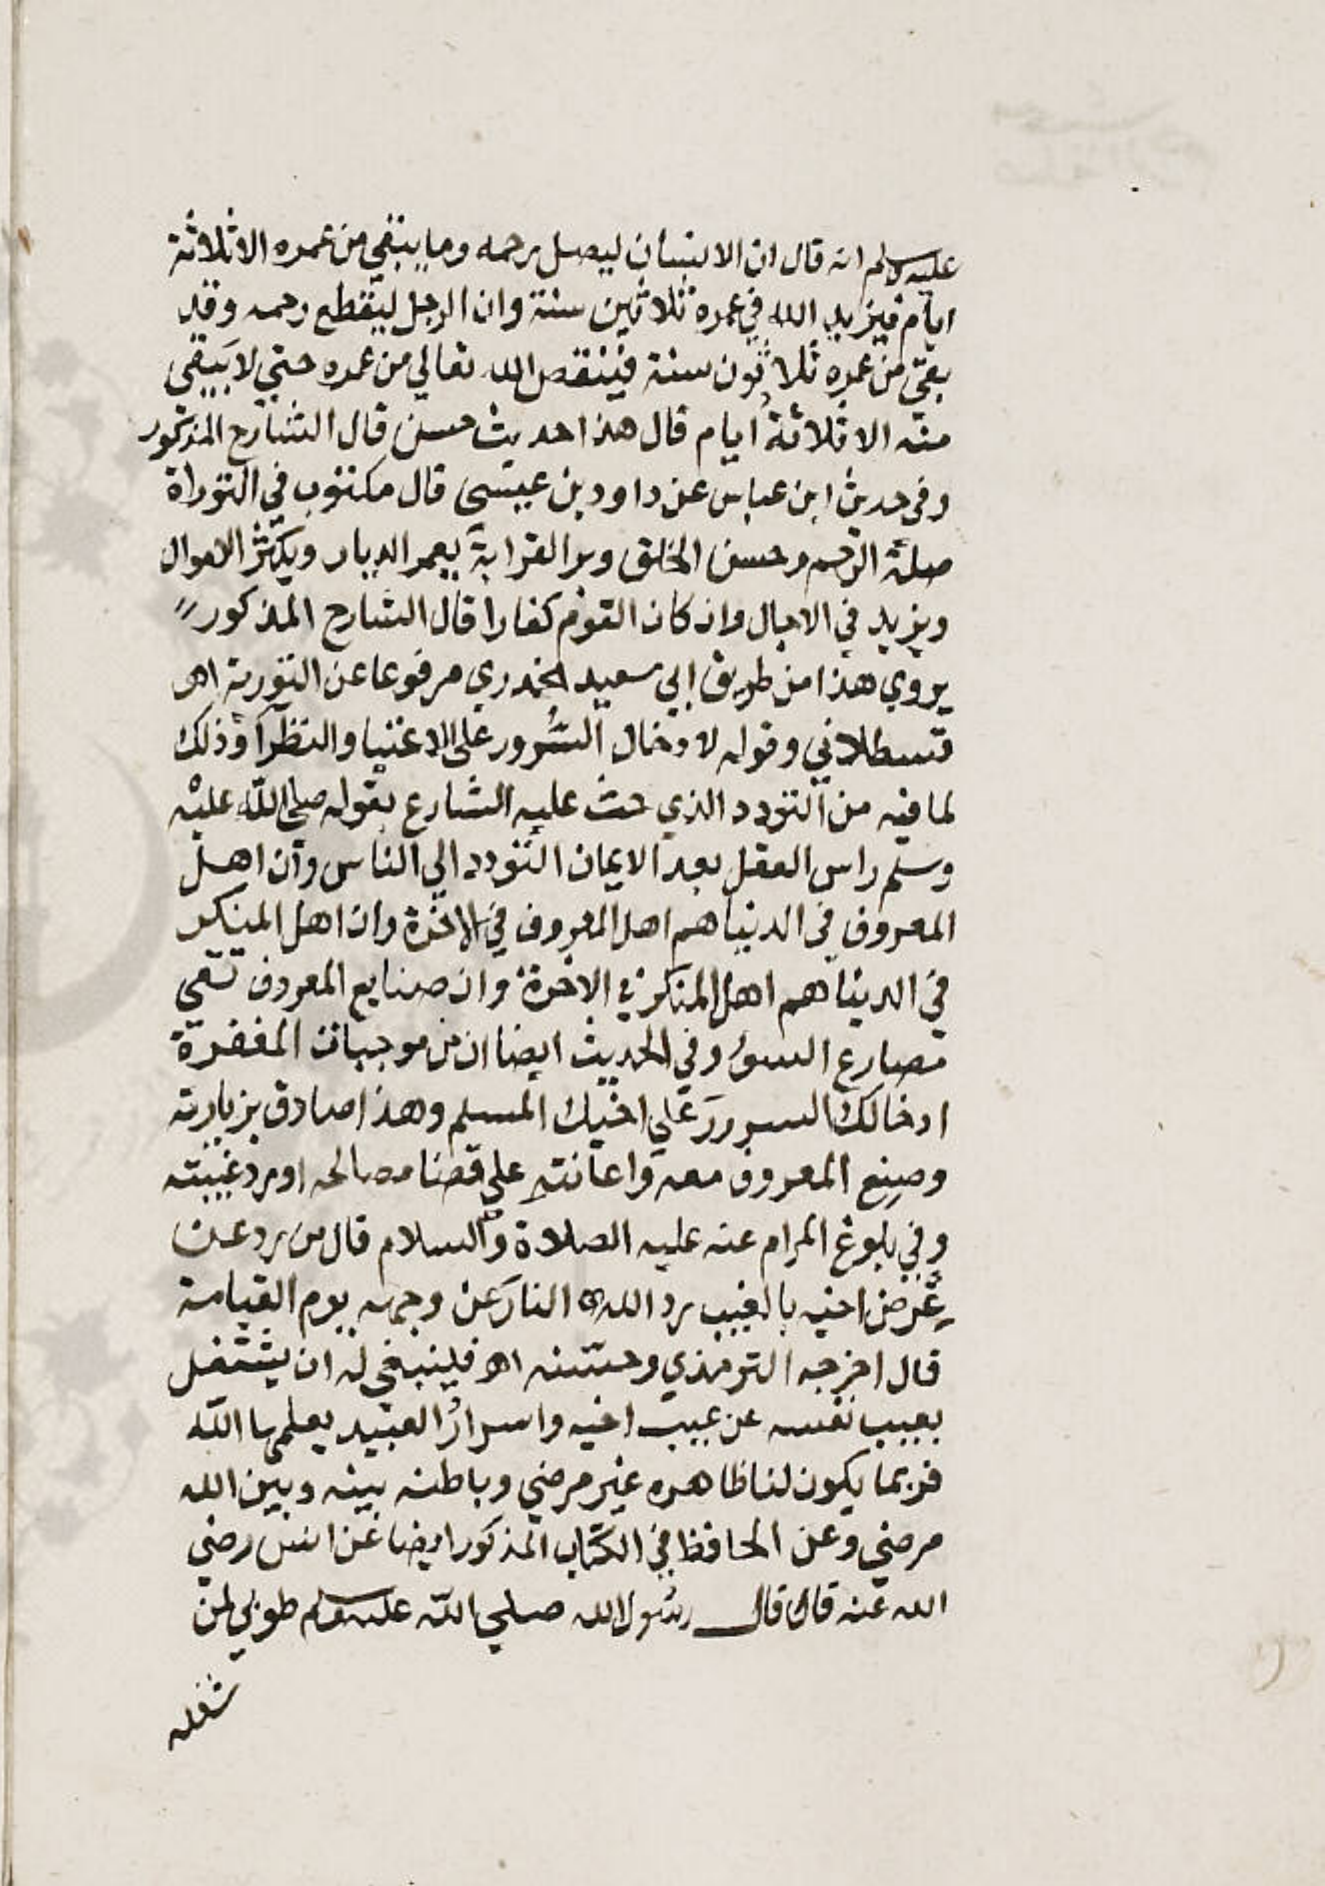 عليه وسلم انه قال ان الانسان ليصل رحمه وما يبقي من عمره الا ثلاثة
ايام فيزيد الله في عمره ثلاثين سنة وان الرجل ليقطع رحمه وقد
بقي من عمره ثلاثون سنة فينقص الله تعالي من عمره حتي لا يبقي
منه الا ثلاثة ايام قال هذا حديث حسن قال الشارح المذكور
وفي حديث ابن عباس عن داود بن عيسى قال مكتوب في التوراة
صلة الرحم وحسن الخلق وبر القرابة يعمر الديار ويكثر الاموال
ويزيد في الاجال وان كان القوم كفارا قال الشارح المذكور
يروي هذا من طريق ابي سعيد الخدري مرفوعا عن التورية اهـ
قسطلاني وقوله لادخال السرور على الاغنيا والنظراء وذلك
لما فيه من التودد الذي حث عليه الشارع بقوله صلي الله عليه
وسلم راس العقل بعد الايمان التودد الي الناس وان اهل
المعروف في الدنيا هم اهل المعروف في الاخرة وان اهل المنكر
في الدنيا هم اهل المنكر في الاخرة وان صنايع المعروف تقي
مصارع السوء وفي الحديث ايضا ان من موجبات المغفرة
ادخالك السرور علي اخيك المسلم وهذا صادق بزيارته
وصنع المعروف معه واعانته علي قضا مصالحه او برد غيبته
وفي بلوغ المرام عنه عليه الصلاة والسلام قال من رد عن
عرض اخيه بالغيب رد الله النار عن وجهه يوم القيامة
قال اخرجه الترمذي وحسنه اهـ فلينبغي له ان يشتغل
بعيب نفسه عن عيب اخيه واسرار العبيد يعلمها الله
فربما يكون لنا ظاهره غير مرضي وباطنه بينه وبين الله
مرضي وعن الحافظ في الكتاب المذكور ايضا عن انس رضي
الله عنه قال قال رسول الله صلي الله عليه وسلم طوبي لمن
شغله